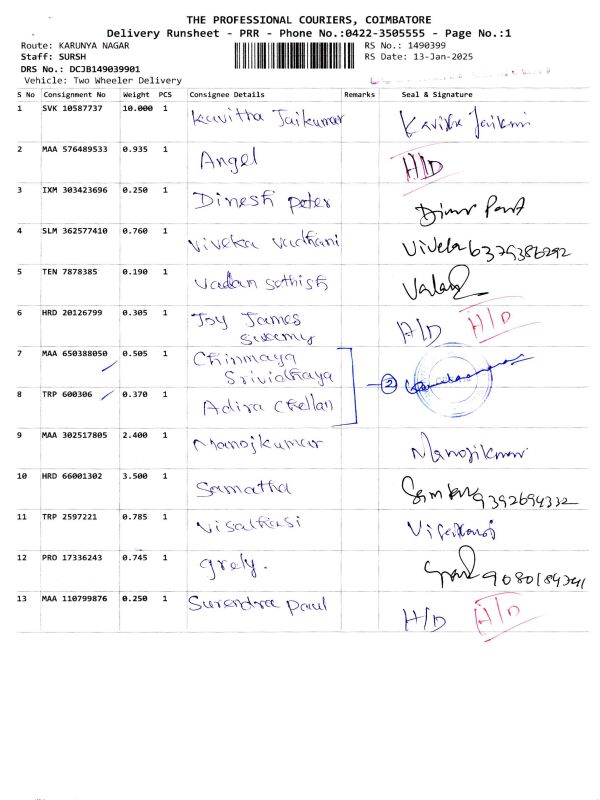 THE PROFESSIONAL COURIERS, COIMBATORE
Delivery Runsheet - PRR - Phone No.:0422-3505555 - Page No.:1
Route: KARUNYA NAGAR RS No.: 1490399
Staff: SURSH RS Date: 13-Jan-2025
DRS No.: DCJB149039901
Vehicle: Two Wheeler Delivery
S No Consignment No Weight PCS Consignee Details Remarks Seal & Signature
1 SVK 10587737 10.000 1 Kavitha Jaikumar
2 MAA 576489533 0.935 1 Angel H/D
3 IXM 303423696 0.250 1 Dinesh peter
4 SLM 362577410 0.760 1 Viveka vadhani Vivela 6379386292
5 TEN 7878385 0.190 1 vadan sathish
6 HRD 20126799 0.305 1 Joy James H/D H/D
7 MAA 650388050 0.505 1 Chinmaya
Srividhaya
2
8 TRP 600306 0.370 1 Adira Chellan
9 MAA 302517805 2.400 1 Manojkumar
10 HRD 66001302 3.500 1 Samatha 9392694332
11 TRP 2597221 0.785 1
12 PRO 17336243 0.745 1 grely. 9080184341
13 MAA 110799876 0.250 1 Surendra paul H/D H/D